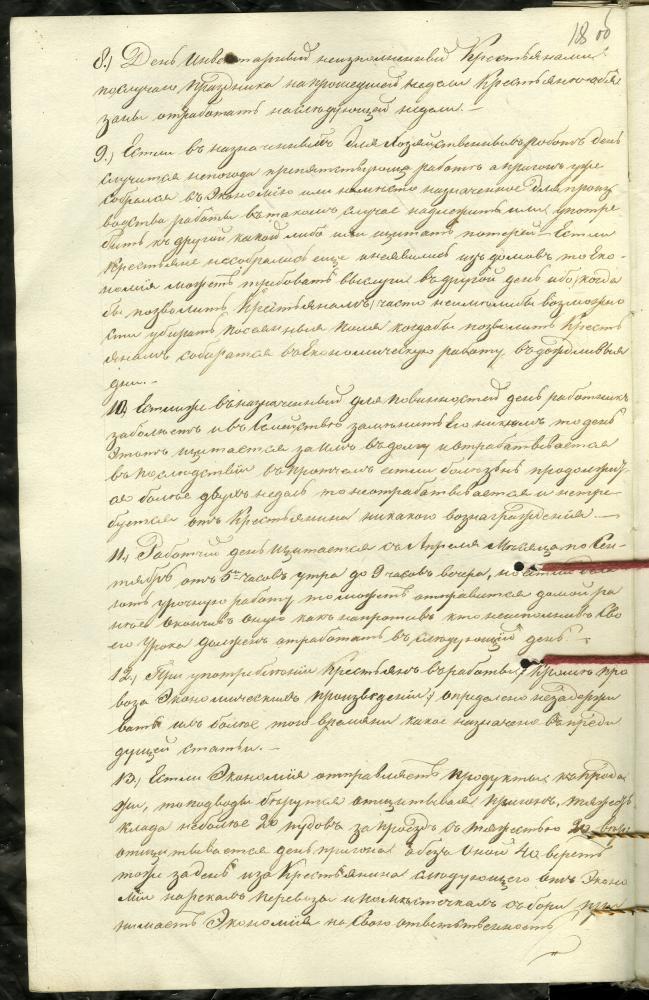 18 об
8.) День Инвентарный неисполненный Крестьянами
по случаю праздника на прошедшей недели Крестьяне обя
заны отработать на следующей недели. —
9.) Если въ назначенный для Хозяйственныхъ роботъ день
случится непогода препятствующа работе а пригонъ уже
собрался въ Экономію или на место назначенное для произ
водства работы въ такомъ случае надлежитъ или употре
бить къ другой какой либо или щитать потерей — Если
Крестьяне не собрались еще и неявились изъ домовъ то Еко-
номія можетъ требовать выслуги въ другой день ибо когда
бы позволить Крестьянамъ часто неимелибы возможно
сти убирать посеянныя поля когдабы позволить Кресть
янамъ собиратся въ Економическую работу въ дождливыя
дни. —
10.) Если же въ назначенный для повинностей день работникъ
заболеетъ и въ Семействе заменить Его никемъ то день
этотъ щитается за имъ въ долгу и отрабатывается
въ последствіи въ протчемъ если болезнь продолжит
ся болѣе двухъ недель то неотрабатывается и нетре
буется отъ Крестьянина никакого вознагражденія. —
11.) Рабочій день щитается съ Апреля Месяца по Сен-
тябрь отъ 5ти часовъ утра до 9 часовъ вечера, но если
урочную работу то можетъ отправится домой ра
нее окончивъ оную какъ напротивъ кто неисполнитъ Сво
его Урока долженъ отработать въ следующій день. —
12.) При употребленіи Крестьянъ въ работы (кроме про
воза Экономическихъ произведеній) определено незадержи
вать ихъ более того времени какое назначено въ преды
дущей статьи. —
13.) Если Экономія отправляетъ продукты къ прода
жи, то подводы берутся отщитывая пригонъ, тяжесть
клада неболее 20 пудовъ за проездъ съ тяжестью 20 верс
отщитывается день пригона а безъ оной 40 верстъ
тоже за день изъ Крестьянина следующаго отъ Эконо
міи на рекахъ перевозы и по местечкамъ сборы при
нимаетъ Экономія на Свою ответственность